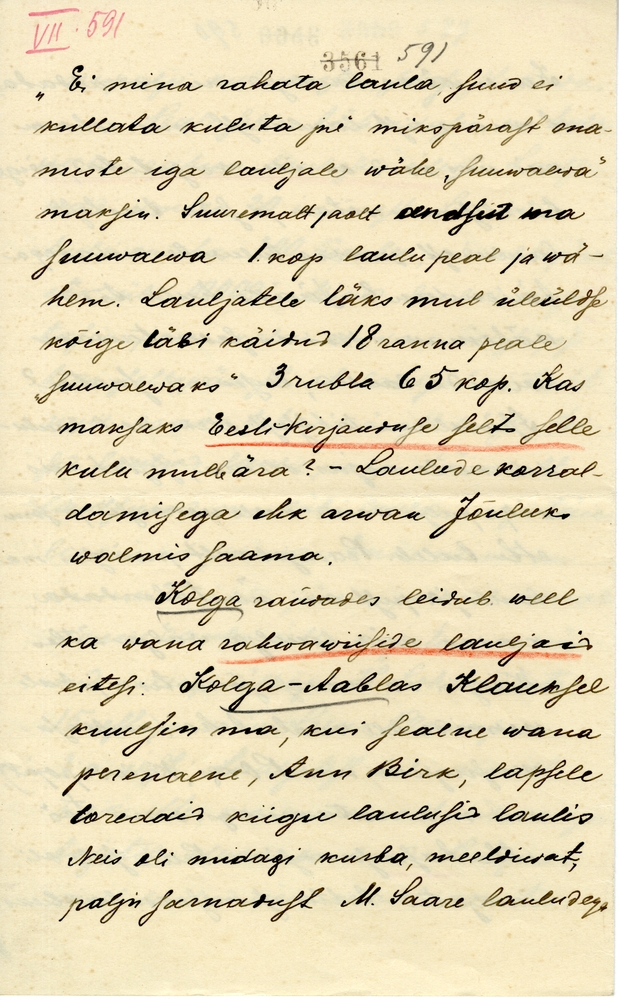 VII. 591
3561 591
„Ei mina rahata laula, suud ei
kullata kuluta pè mikspärast ena-
miste iga lauljale wähe „suuwaewa“
maksin. Suuremalt jaolt andsin ma
suuwaewa 1 kop laulu peal ja wä-
hem. Lauljatele läks mul üleüldse
kõige läbi käidud 18 ranna peale
„suuwaewaks“ 3 rubla 65 kop. Kas
maksaks Eesti Kirjanduse selts selle
kulu mulle ära? – Laulude korral-
damisega ehk arwan Jõuluks
walmis saama.
Kolga randades leidub weel
ka wana rahwawiiside lauljaid
eitesi. Kolga-Aablas Klauksel
kuulsin ma, kui sealne wana
perenaene, Ann Birk, lapsele
toredaid kiigu laulusid laulis
Neis oli midagi kurba, meeldiwat,
palju sarnadust M. Saare lauludega